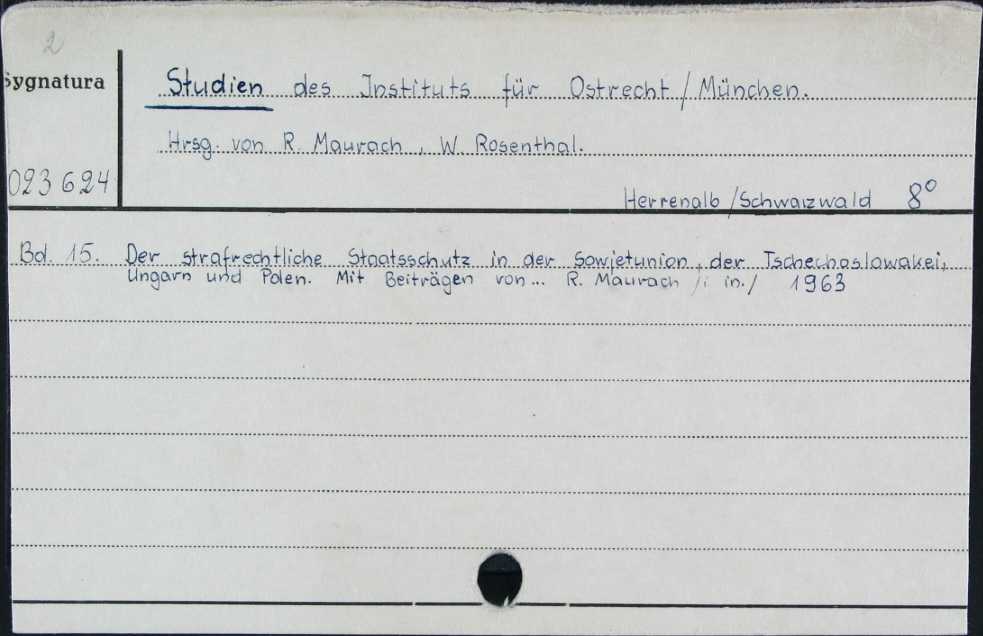 2
Sygnatura
Studien des Instituts für Ostrecht / München.
Hrsg. von R. Maurach, W. Rosenthal.
023 624
Herrenalb / Schwarzwald 8°
Bd. 15. Der strafrechtliche Staatsschutz in der Sowjetunion, der Tschechoslowakei,
Ungarn und Polen. Mit Beiträgen von... R. Maurach /i in./ 1963